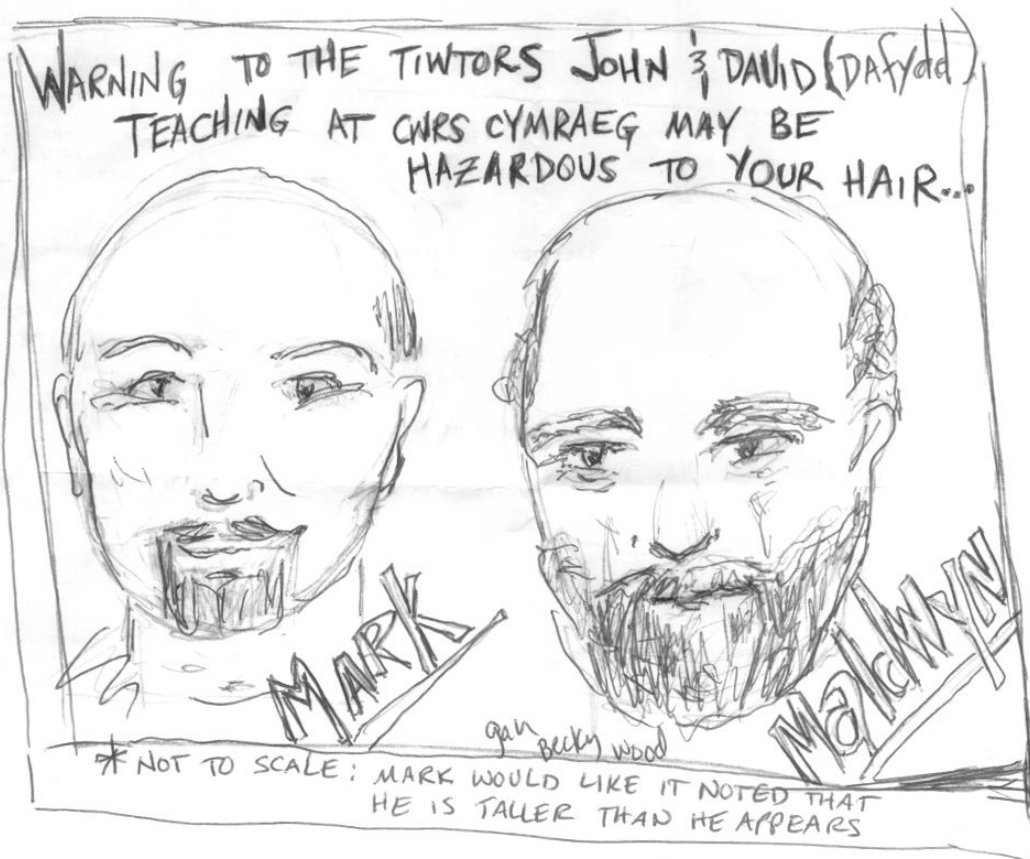 WARNING TO THE TIWTORS JOHN & DAVID (DAfydd)
TEACHING AT CWRS CYMRAEG MAY BE
HAZARDOUS TO YOUR HAIR...
MARK
MaldWyN
gan Becky Wood
* NOT TO SCALE: MARK WOULD LIKE IT NOTED THAT
HE IS TALLER THAN HE APPEARS